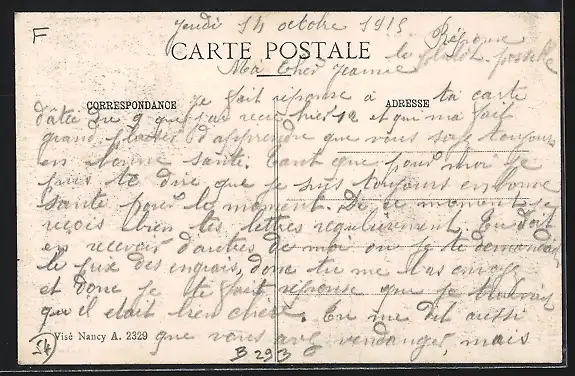 F
Jeudi 14 octobre 1915
CARTE POSTALE
Réponse
le plutôt possible
Ma Cher Jeanne
CORRESPONDANCE
ADRESSE
Je fait réponse à ta carte
dâtée du 9 que j'ai recu hier 12 et qui ma fait
grand plaisir d'apprendre que vous soyez toujours
en bonne santé. tant que pour moi je
puis te dire que je suis toujours en bonne
santé pour le moment. De ce moment je
reçois bien tes lettres regulierement. Tu doit
en recevoir d'autres de moi ou je te demandais
le prix des engrais, donc tu me l'as envoyé
et donc je te fait réponse que je trouvais
qu'il etait bien chère. Tu me dit aussi
que vous avez vendanger, mais
Visé Nancy A. 2329
54
B 293